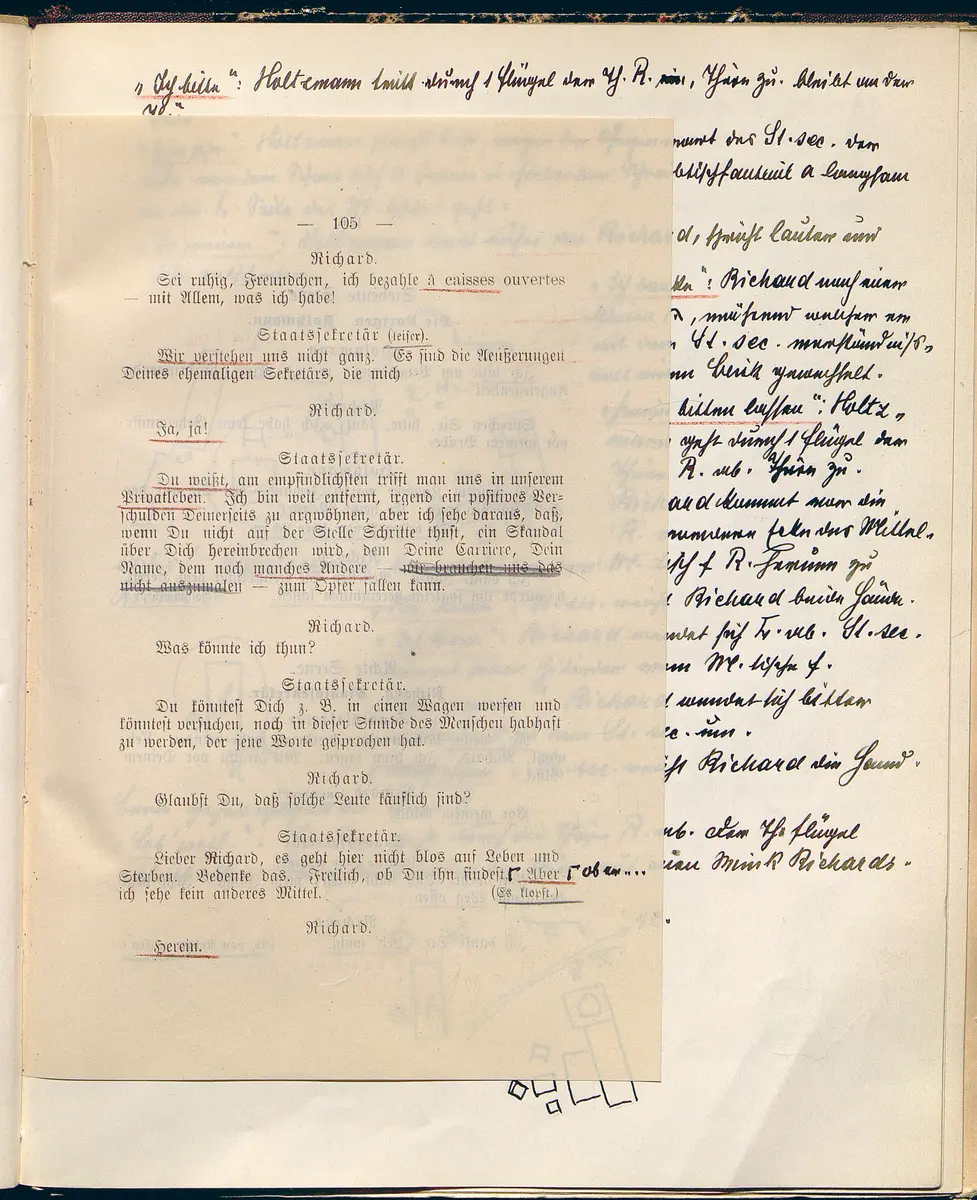 „Ich bitte“: Holtzmann tritt durch 1 flügel der Th. R. ein, Thüre zu. bleibt an der
Th.
— 105 —
Richard.
Sei ruhig, Freundchen, ich bezahle à caisses ouvertes
— mit Allem, was ich habe!
Staatssekretär (leiser).
Wir verstehen uns nicht ganz. Es sind die Aeußerungen
Deines ehemaligen Sekretärs, die mich
Richard.
Ja, ja!
Staatssekretär.
Du weißt, am empfindlichsten trifft man uns in unserem
Privatleben. Ich bin weit entfernt, irgend ein positives Ver=
schulden Deinerseits zu argwöhnen, aber ich sehe daraus, daß,
wenn Du nicht auf der Stelle Schritte thust, ein Skandal
über Dich hereinbrechen wird, dem Deine Carriere, Dein
Name, dem noch manches Andere — wir brauchen uns das
nicht auszumalen — zum Opfer fallen kann.
Richard.
Was könnte ich thun?
Staatssekretär.
Du könntest Dich z. B. in einen Wagen werfen und
könntest versuchen, noch in dieser Stunde des Menschen habhaft
zu werden, der jene Worte gesprochen hat.
Richard.
Glaubst Du, daß solche Leute käuflich sind?
Staatssekretär.
Lieber Richard, es geht hier nicht blos auf Leben und
Sterben. Bedenke das. Freilich, ob Du ihn findest Aber aber...
ich sehe kein anderes Mittel. (Es klopft.)
Richard.
Herein.
des St. sec. der
btischfauteuil a langsam
d, spricht lauter und
: Richard nach einer
, während welcher er
St. sec. verständnis-
Blick gewechselt.
bitten lassen“: Holtz-
geht durch 1 flügel der
R. ab. Thüre zu.
ard kommt vor die
vordere Ecke des Mittel-
sch f R. herum zu
Richard beide Hände.
ndet sich L. ab. St. sec.
m M. tische f.
wendet sich bitter
c. um.
Richard die Hand.
ab. der Th. flügel
Wink Richards.